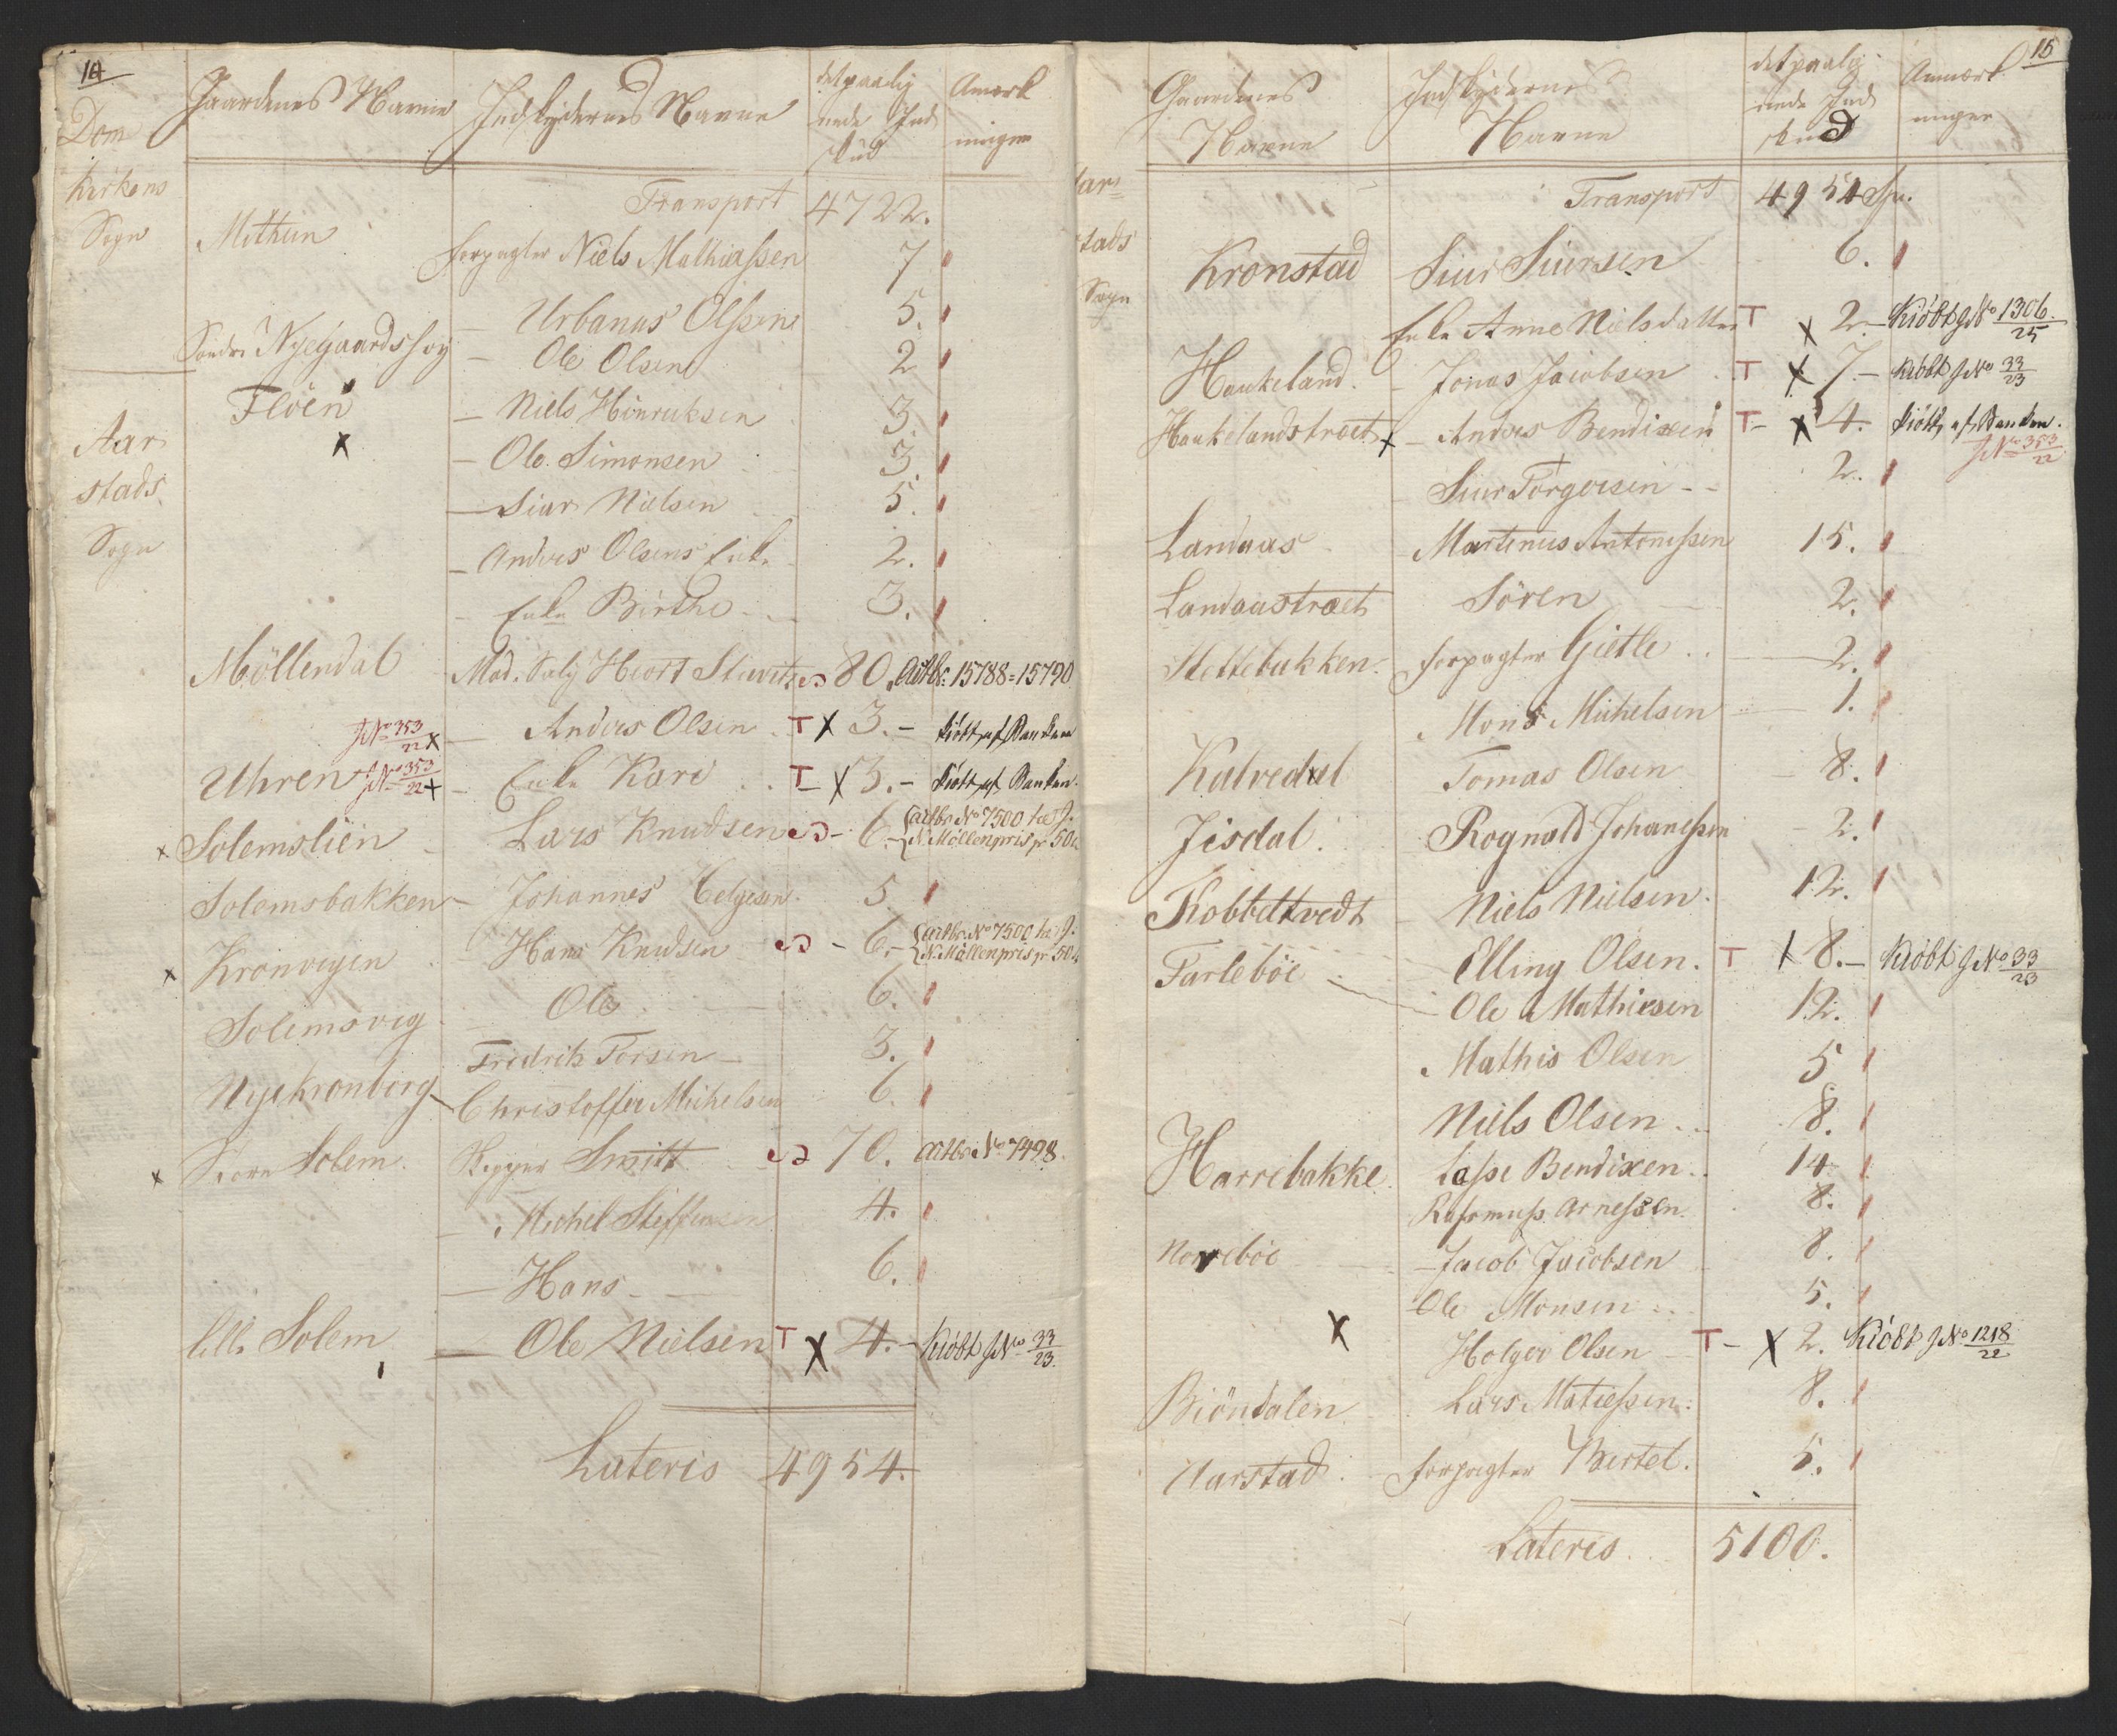 14
Gaardenes Navne
Indskydernes Navne
det paalig
nede Ind
skud
Anmærk
ninger
Dom
Kirkens
Sogn
Transport 4722.
Mithun forpagter Niels Mathiassen 7
Urbanus Olssen 5.
Söndre Nyegaardsföy Ole Olsen 2
Flöen Niels Hinriksen 3.
Aar
stads
Sogn
x
Ole Simonsen 3.
Siur Nielsen 5.
Anders Olsens Enke 2.
Enke Birthe 3.
Möllendal Mad. Salg Hiort 80. Actbr: 15788=15790
JNo 353/22 x Anders Olsen T x 3.- kiöbt af Banken
Uhren JNo 353/22 x Enke Kari T x 3.- kiöbt af Banken.
x Solemslien Lars Knudsen 6.- {actbr No 7500 har J. N. Möllenpris pr 50
Solemsbakken Johannes Helgesen 5
x Kronvigen Hans Knudsen - 6.- {actbr No 7500 har J. N. Möllenpris pr 50
Solemsvig Ole 6.
Fredrik Torsen 3.
Nyekronborg Christoffer Michelsen 6.
x Store Solem Kipper Smitt 70. actbr No 7498.
Michel Steffensen 4.
Hans 6.
Lille Solem Ole Nielsen T x 4.- kiöbt JNo 33/23.
Lateris 4954.
15
Gaardenes
Navne
Indskydernes
Navne
det paalig
nede Ind
skud
Anmærk
ninger
Aar=
stads
Sogn
Transport 4954 Spr.
Kronstad Siur Siursen 6.
Enke Anne Nielsdatter T x 2.- Kiöbt JNo 1306./25
Haukeland. Jonas Jacobsen T x 7.- kiöbt JNo 33/23
Haukelandstræet x Anders Bendixen T- x 4. kiöbt af Banken.
JNo 353/22
Siur Torgersen 2.
Landaas Martinus Antonissen 15.
Landaastræet Sören 2.
Slettebakken. forpagter Gietle 2.
Mons Michelsen 1.
Kalvedal Tomas Olsen 8.
Jisdal. Rognald Johanessen 2.
Kobbeltvedt Niels Nielsen. 12.
Farleböe Elling Olsen. T x 8.- kiöbt JNo 33/23
Ole Mathiesen 12.
Mathis Olsen 5
Niels Olsen 8.
Harrebakke Lasse Bendixen 14
Rassmuss Arnessen. 8.
Norreböe Jacob Jacobsen 8.
Ole Monsen 5.
x Holger Olsen T- x 2. Kiöbt JNo 1218/22
Biöndalen Lars Matiessen. 8.
Aarstad forpagter Bertel. 5.
Lateris 5100.